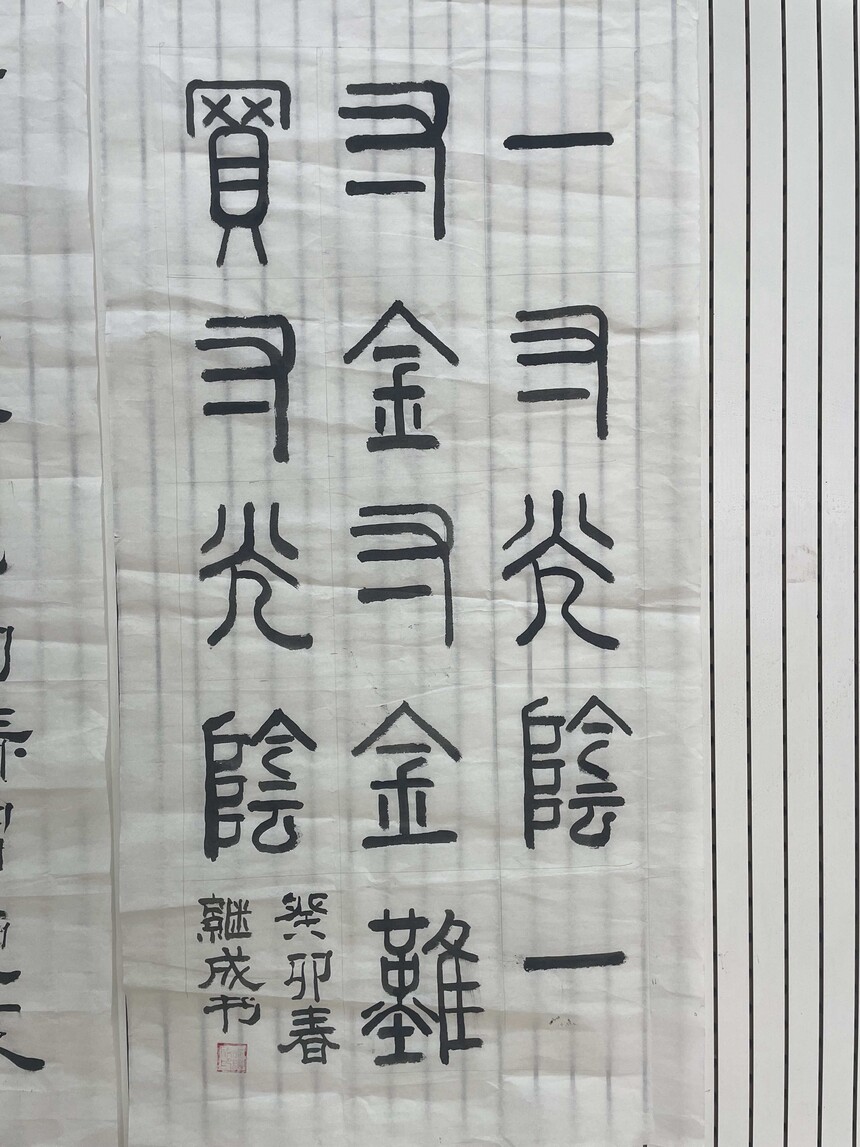 一寸光陰一
寸金寸金難
買寸光陰
癸卯春
継成书